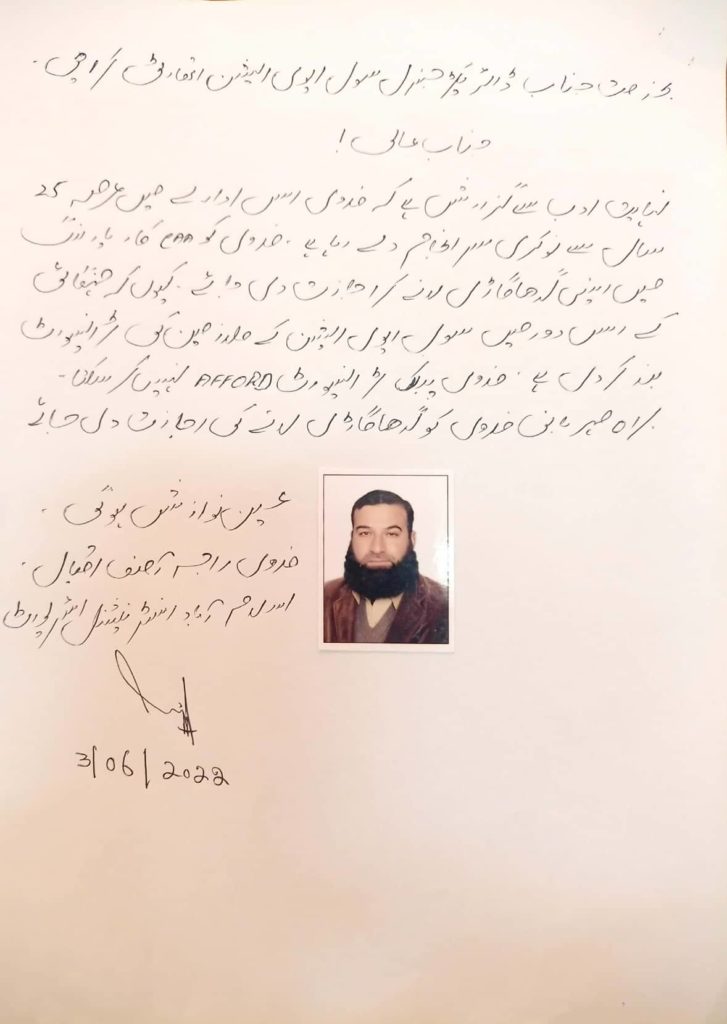 بخدمت جناب ڈائریکٹر جنرل سول ایوی ایشن اتھارٹی کراچی۔
جناب عالی!
نہایت ادب سے گزارش ہے کہ فدوی اس ادارے میں عرصہ 25
سال سے نوکری سرانجام دے رہا ہے۔ فدوی کو CAA کار پارکنگ
میں اپنی گدھا گاڑی لانے کی اجازت دی جائے۔ کیوں کہ مہنگائی
کے اس دور میں سول ایوی ایشن کے ملازمین کی ٹرانسپورٹ
بند کر دی ہے۔ فدوی پبلک ٹرانسپورٹ AFFORD نہیں کر سکتا۔
براہ مہربانی فدوی کو گدھا گاڑی لانے کی اجازت دی جائے
عین نوازش ہوگی۔
فدوی راجہ آصف اقبال۔
اسلام آباد انٹرنیشنل ائیرپورٹ
3/06/2022